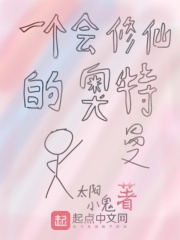 一个会修仙
的奥特
曼
太阳
小鬼
著
起
起点中文网